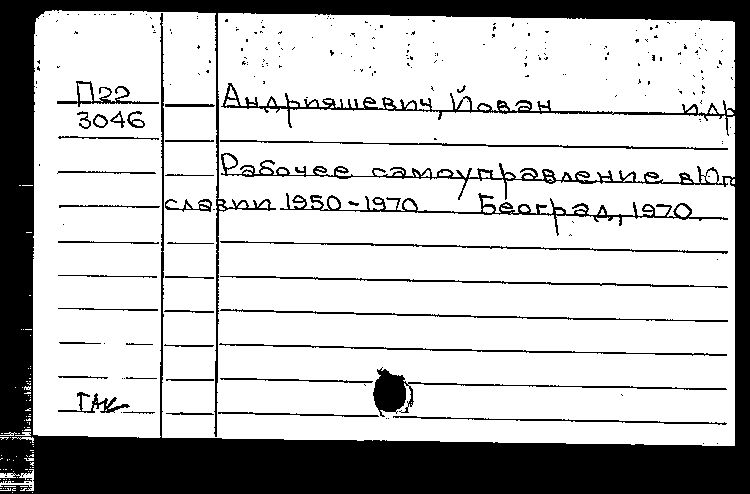 П22
3046
Андрияшевич, Йован и др
Рабочее самоуправление в Юго
славии 1950-1970. Београд, 1970.
ТАК